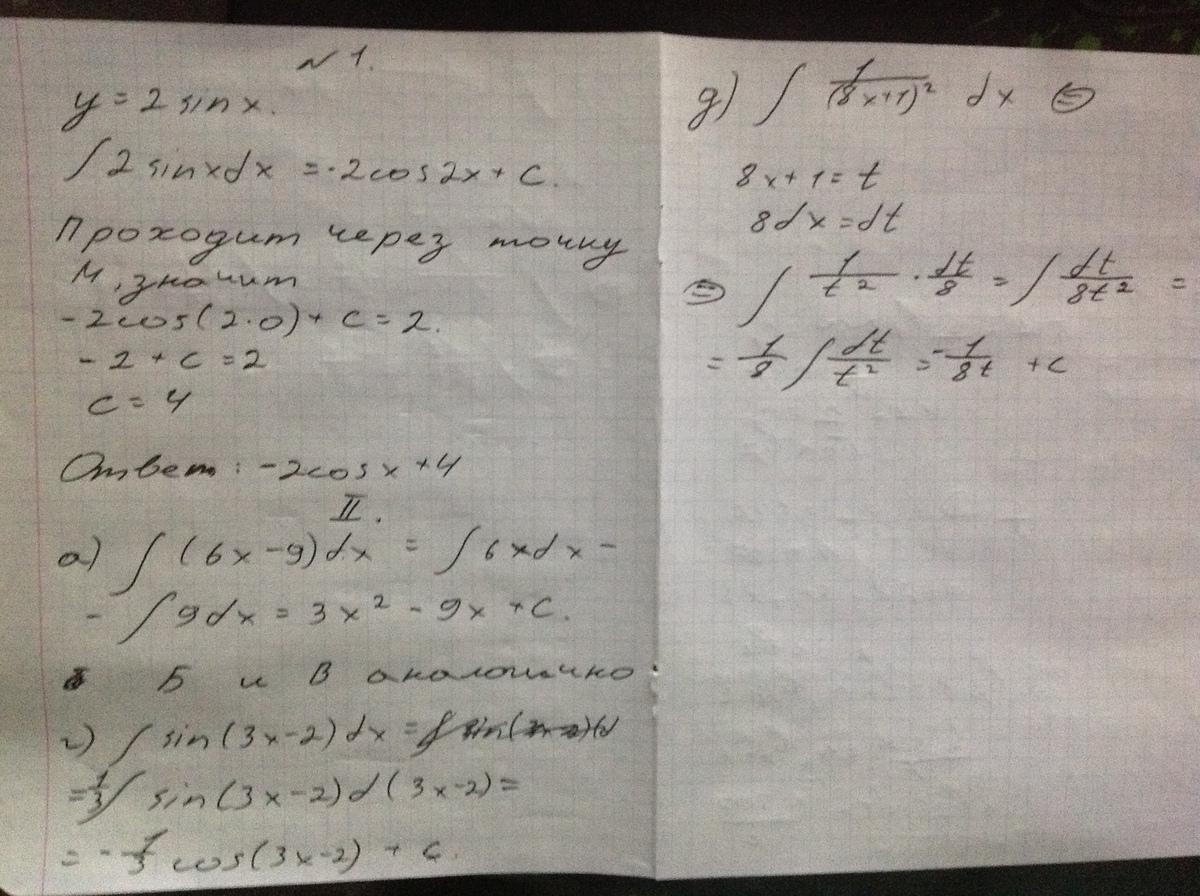 № 1.
y = 2 sin x.
∫ 2 sin x dx = -2cos2x + C.
Проходит через точку
М, значит
-2cos(2·0) + C = 2.
- 2 + C = 2
C = 4
Ответ: -2cosx + 4
II.
а) ∫ (6x - 9) dx = ∫ 6x dx -
- ∫ 9dx = 3x² - 9x + C.
Б и В аналогично
г) ∫ sin(3x-2) dx =
= 1/3 ∫ sin(3x-2) d(3x-2) =
= - 1/3 cos(3x-2) + C.
д) ∫ 1/(8x+1)² dx ⊜
8x + 1 = t
8dx = dt
⊜ ∫ 1/t² · dt/8 = ∫ dt/8t² =
= 1/8 ∫ dt/t² = - 1/8t + C